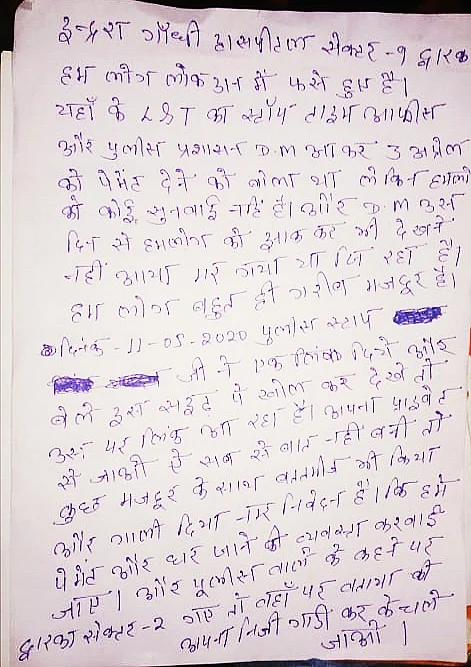 इन्द्रा गाँधी हासपीटल सेक्टर-9 द्वारका
हम लोग लोकडान में फसे हुए है।
यहाँ के L&T का स्टॉप टाइम आफीस
और पुलीस प्रशासन D.M आकर 3 अप्रैल
को पेमेंट देने को बोला था लेकिन हमलो
को कोई सुनवाई नहि है। और D.M उस
दिन से हमलोग को आक कर भी देखने
नहीं आया मर गया या जि रहा है।
हम लोग बहुत ही गरीब मजदुर है।
दिनांक-11-05-2020 पुलीस स्टाप
जी ने एक लिंक दिये और
बोले इस साइट पे खोल कर देखे तो
उस पर लिंक आ रहा है। अपना प्राइवेट
से जाओ ऐ सब से बात नहीं बनी तो
कुछ मजदुर के साथ बततमीज भी किया
और गाली दिया नम्र निवेदन है। कि हमे
पेमेंट और घर जाने की व्यवस्था करवाई
जाए। और पुलीस वाले के कहने पर
द्वारका सेक्टर-2 गए तो वहाँ पर बताया की
अपना निजी गाडी कर के चले
जाओ।